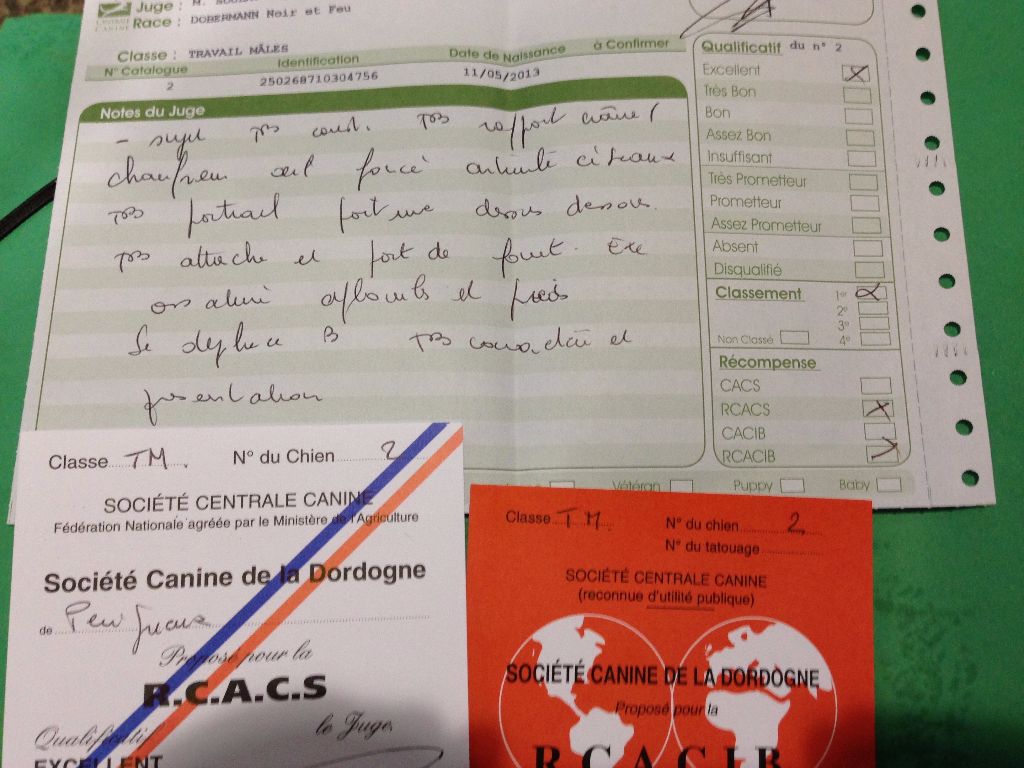 Juge : M.
CENTRALE
CANINE
Race : DOBERMANN Noir et Feu
Classe : TRAVAIL MÂLES
N° Catalogue Identification Date de Naissance à Confirmer
2 250268710304756 11/05/2013
Notes du Juge
- sujet TB const. TB rapport crâne /
chanfrein œil foncé ciseaux
TB portrait dessus dessous.
TB attache et port de fouet. Exc
ossature aplombs et pieds
Se déplace B TB et
présentation
Qualificatif du n° 2
Excellent X
Très Bon
Bon
Assez Bon
Insuffisant
Très Prometteur
Prometteur
Assez Prometteur
Absent
Disqualifié
Classement 1er
2e
3e
Non Classé 4e
Récompense
CACS
RCACS X
CACIB
RCACIB X
Vétéran Puppy Baby
Classe TM. N° du Chien 2
SOCIÉTÉ CENTRALE CANINE
Fédération Nationale agréée par le Ministère de l'Agriculture
Société Canine de la Dordogne
de
Proposé pour la
R.C.A.C.S
Qualificatif le Juge,
EXCELLENT
Classe TM N° du chien 2
N° du tatouage
SOCIÉTÉ CENTRALE CANINE
(reconnue d'utilité publique)
SOCIÉTÉ CANINE DE LA DORDOGNE
Proposé pour la
R C A C I B